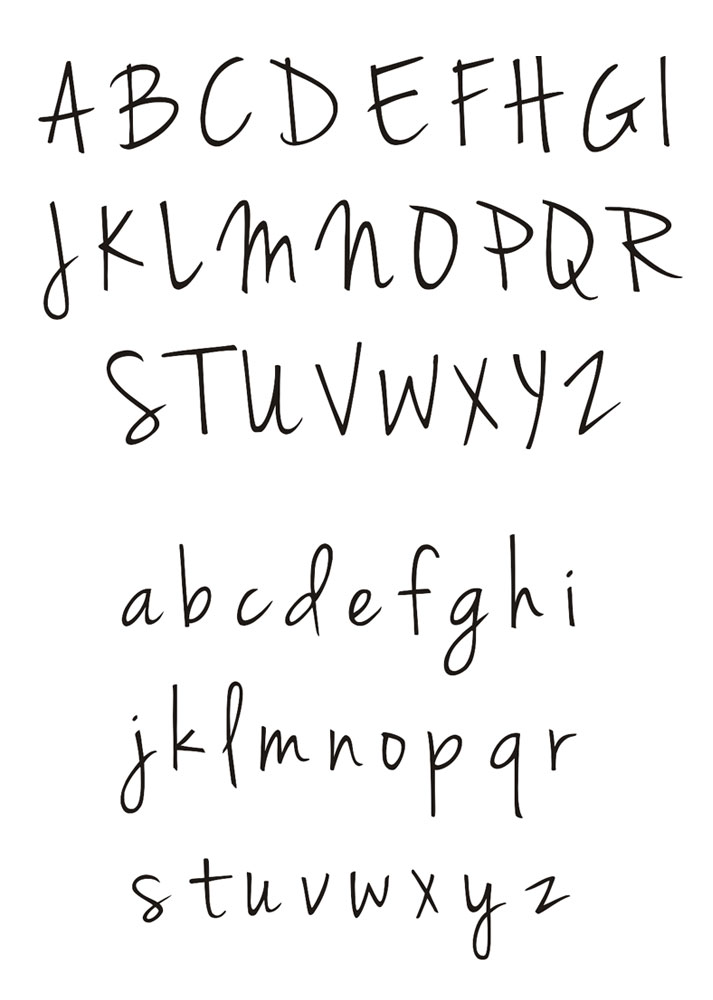 A B C D E F H G I
J K L M N O P Q R
S T U V W X Y Z
a b c d e f g h i
j k l m n o p q r
s t u v w x y z